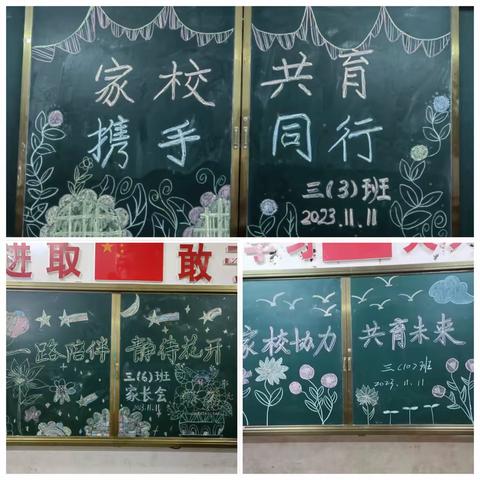 家校 共育
携手 同行
三(3)班
2023.11.11
进取 敢
一路陪伴 静待花开
三(6)班
家长会
2023.11.11
家校协力 共育未来
三(10)班
2023.11.11